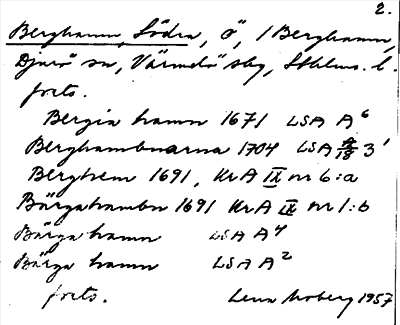 2.
Berghamn, Södra, ö, /Berghamn,
Djurö sn, Värmdö sbg, Sthlms. l.
forts.
Bergia hamn 1671 LSA A⁶
Berghambnarna 1704 LSA A/18 3¹
Berghem 1691, KrA IX nr 6:a
Bärgahambn 1691 KrA IX nr 1:b
Bärga hamn LSA A⁴
Bärga hamn LSA A²
forts. Lena Moberg 1957